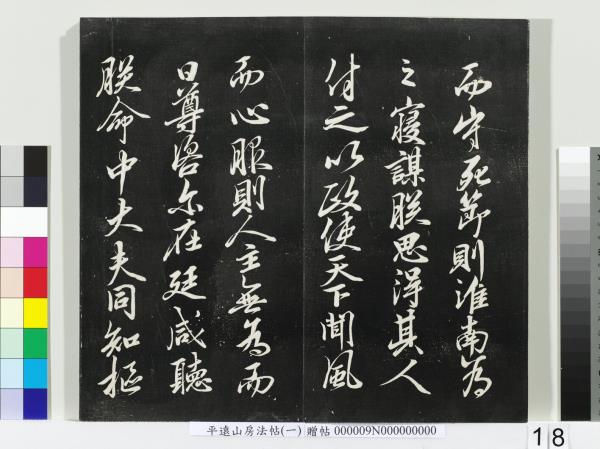 而守死節則淮南為
之寢謀朕思得其人
付之以政使天下聞風
而心服則人主無為而
日尊咨尔在廷咸聽
朕命中大夫同知樞
平遠山房法帖(一) 贈帖 000009N000000000
18